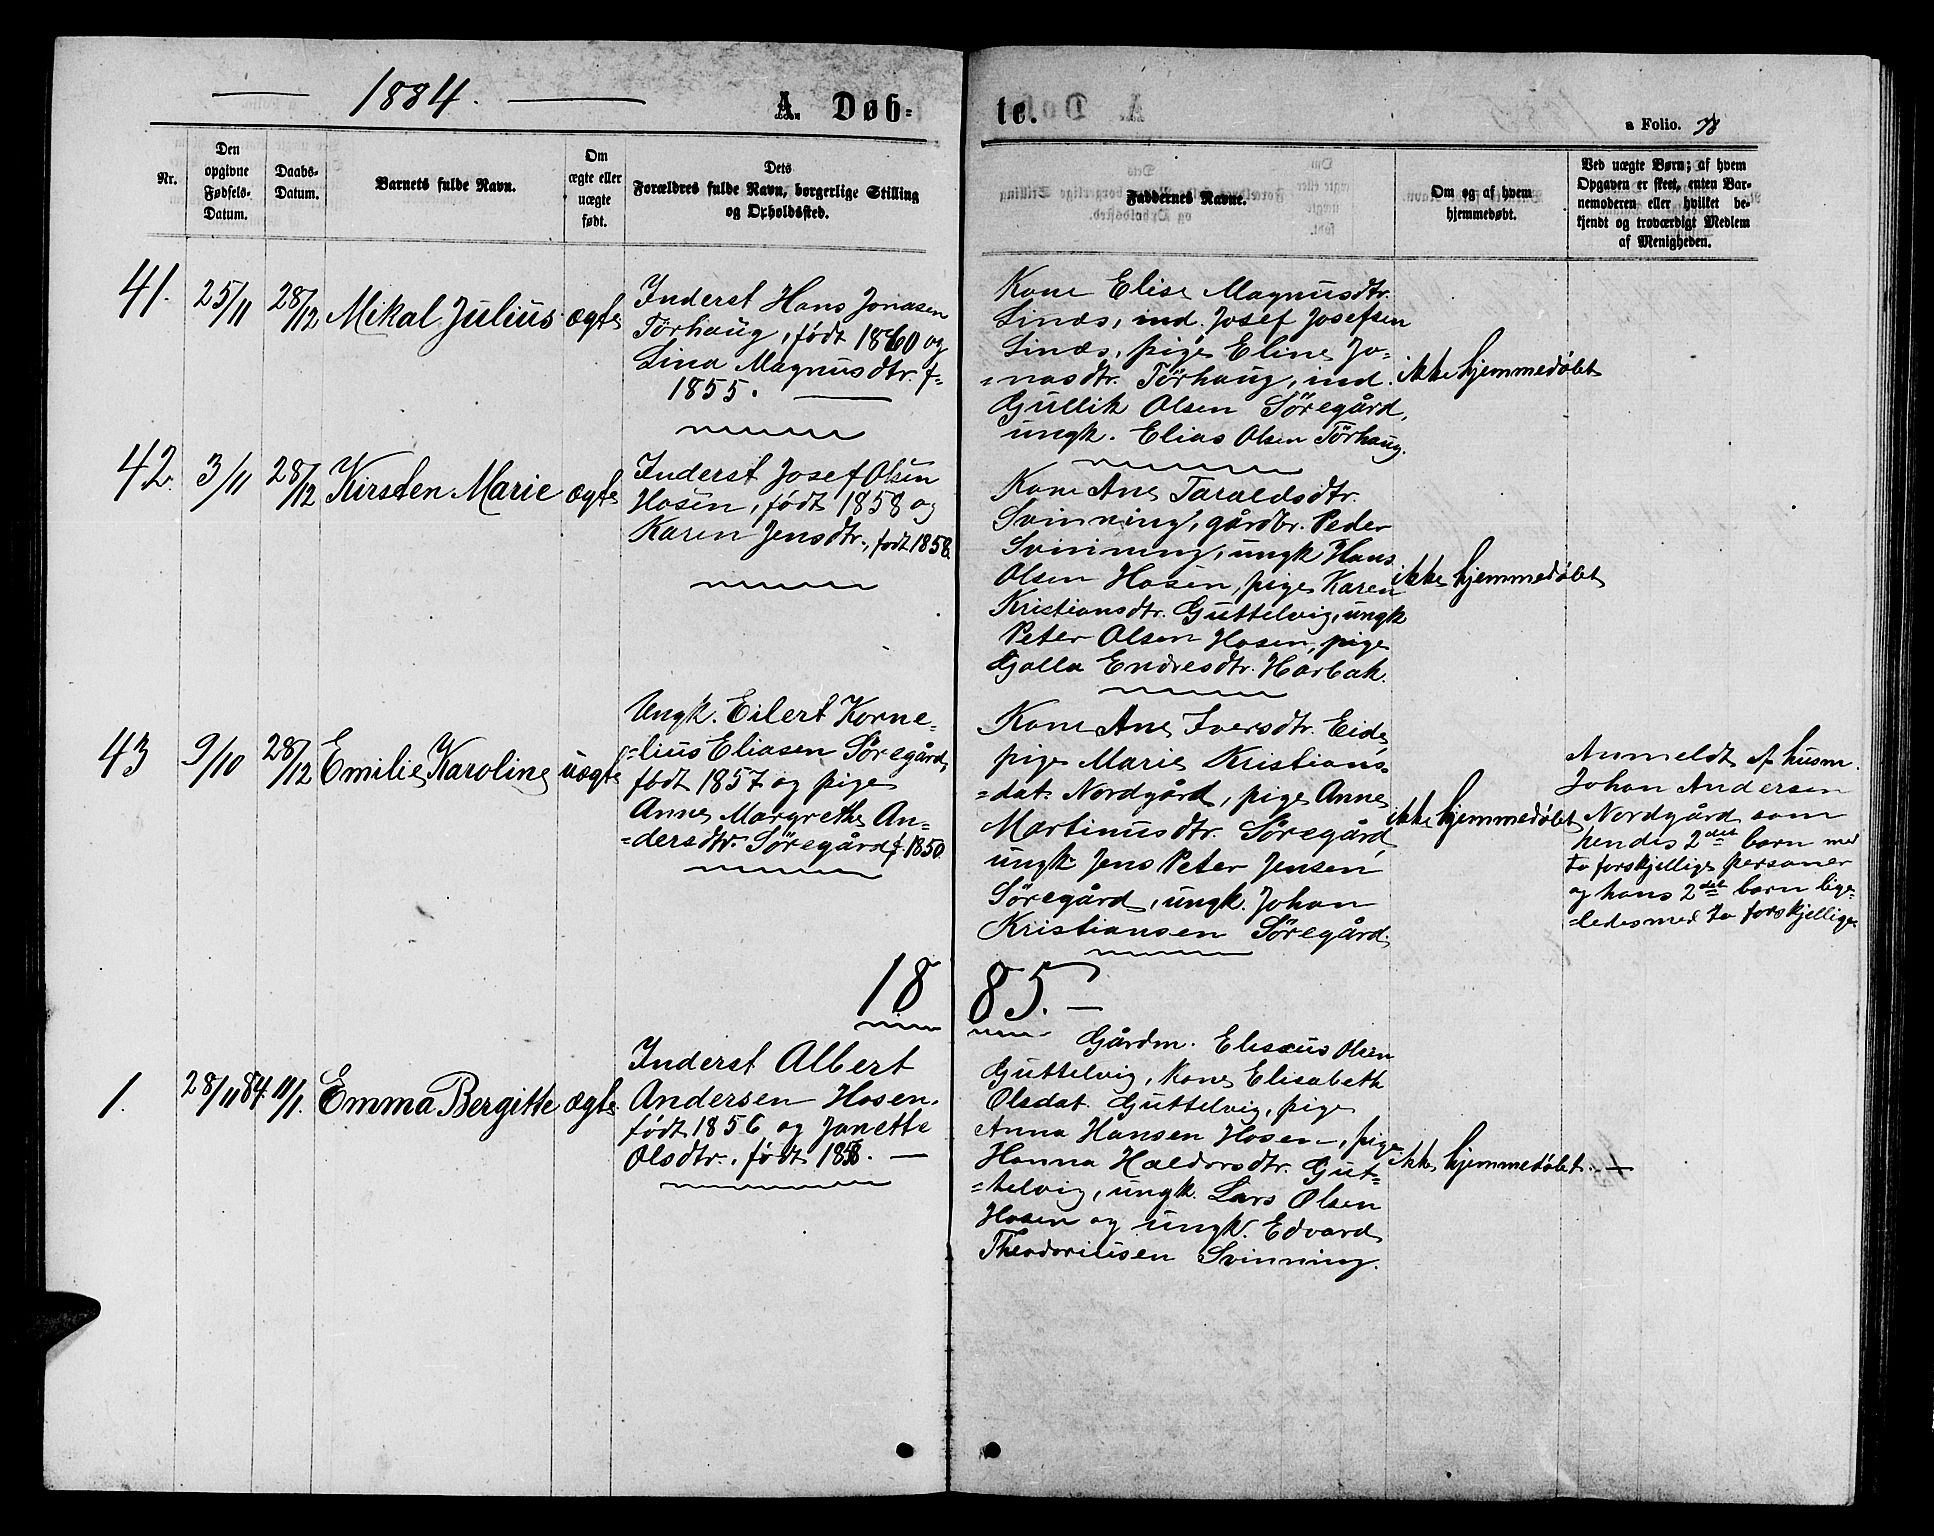 1884.
A. Døb-
te.
a Folio. 78
Nr.
Den
opgivne
Fødsels-
Datum.
Daabs-
Datum.
Barnets fulde Navn.
Om
ægte eller
uægte
født.
Dets
Forældres fulde Navn, borgerlige Stilling
og Opholdssted.
Faddernes Navne.
Om og af hvem
hjemmedøbt.
Ved uægte Børn; af hvem
Opgaven er skeet, enten Bar-
nemoderen eller hvilket be-
kjendt og troværdigt Medlem
af Menigheden.
41.
25/11
28/12
Mikal Julius
ægte
Inderst Hans Jonasen
Tørhaug, født 1860 og
Lina Magnusdtr. f-
1855.
Kone Elise Magnusdtr.
Linds, ind. Josef Josefsen
Linds, pige Eline Jo-
=nasdtr. Tørhaug, ind.
Gullik Olsen Søregård,
ungk. Elias Olsen Tørhaug.
ikke hjemmedøbt
42.
3/11
28/12
Kirsten Marie
ægte
Inderst Josef Olsen
Hosen, født 1858 og
Karen Jensdtr., født 1858.
Kone Ane Taraldsdtr.
Svinning, gårdbr. Peder
Svinning, ungk Hans
Olsen Hosen, pige Karen
Kristiansdtr. Guttelvig, ungk
Peter Olsen Hosen, pige
Gjolla Endresdtr. Harbak.
ikke hjemmedøbt
43
9/10
28/12
Emilie Karoline
uægte
Ungk. Eilert Korne-
=lius Eliasen Søregård,
født 1857 og pige
Anne Margrethe An-
=dersdtr. Søregård f. 1850.
Kone Ane Iversdtr. Eide,
pige Marie Kristians-
=dat. Nordgård, pige Anne
Martinusdtr. Søregård,
ungk. Jens Peter Jensen
Søregård, ungk. Johan
Kristiansen Søregård.
ikke hjemmedøbt
Anmeldt af husm.
Johan Andersen
Nordgård som
hendes 2det barn med
to forskjellige personer
og hans 2det barn lige-
=ledes med to forskjellige.
18 85.
1.
28/11 84.
11/1.
Emma Bergitte
ægte.
Inderst Albert
Andersen Hosen,
født 1856 og Janette
Olsdtr., født 1858.
Gårdm. Elisæus Olsen
Guttelvig, Kone Elisabeth
Olsdat. Guttelvig, pige
Anna Hansen Hosen, pige
Hanna Haldorsdtr. Gut-
=telvig, ungk. Lars Olsen
Hosen og ungk. Edvard
Theodoriusen Svinning.
ikke hjemmedøbt.